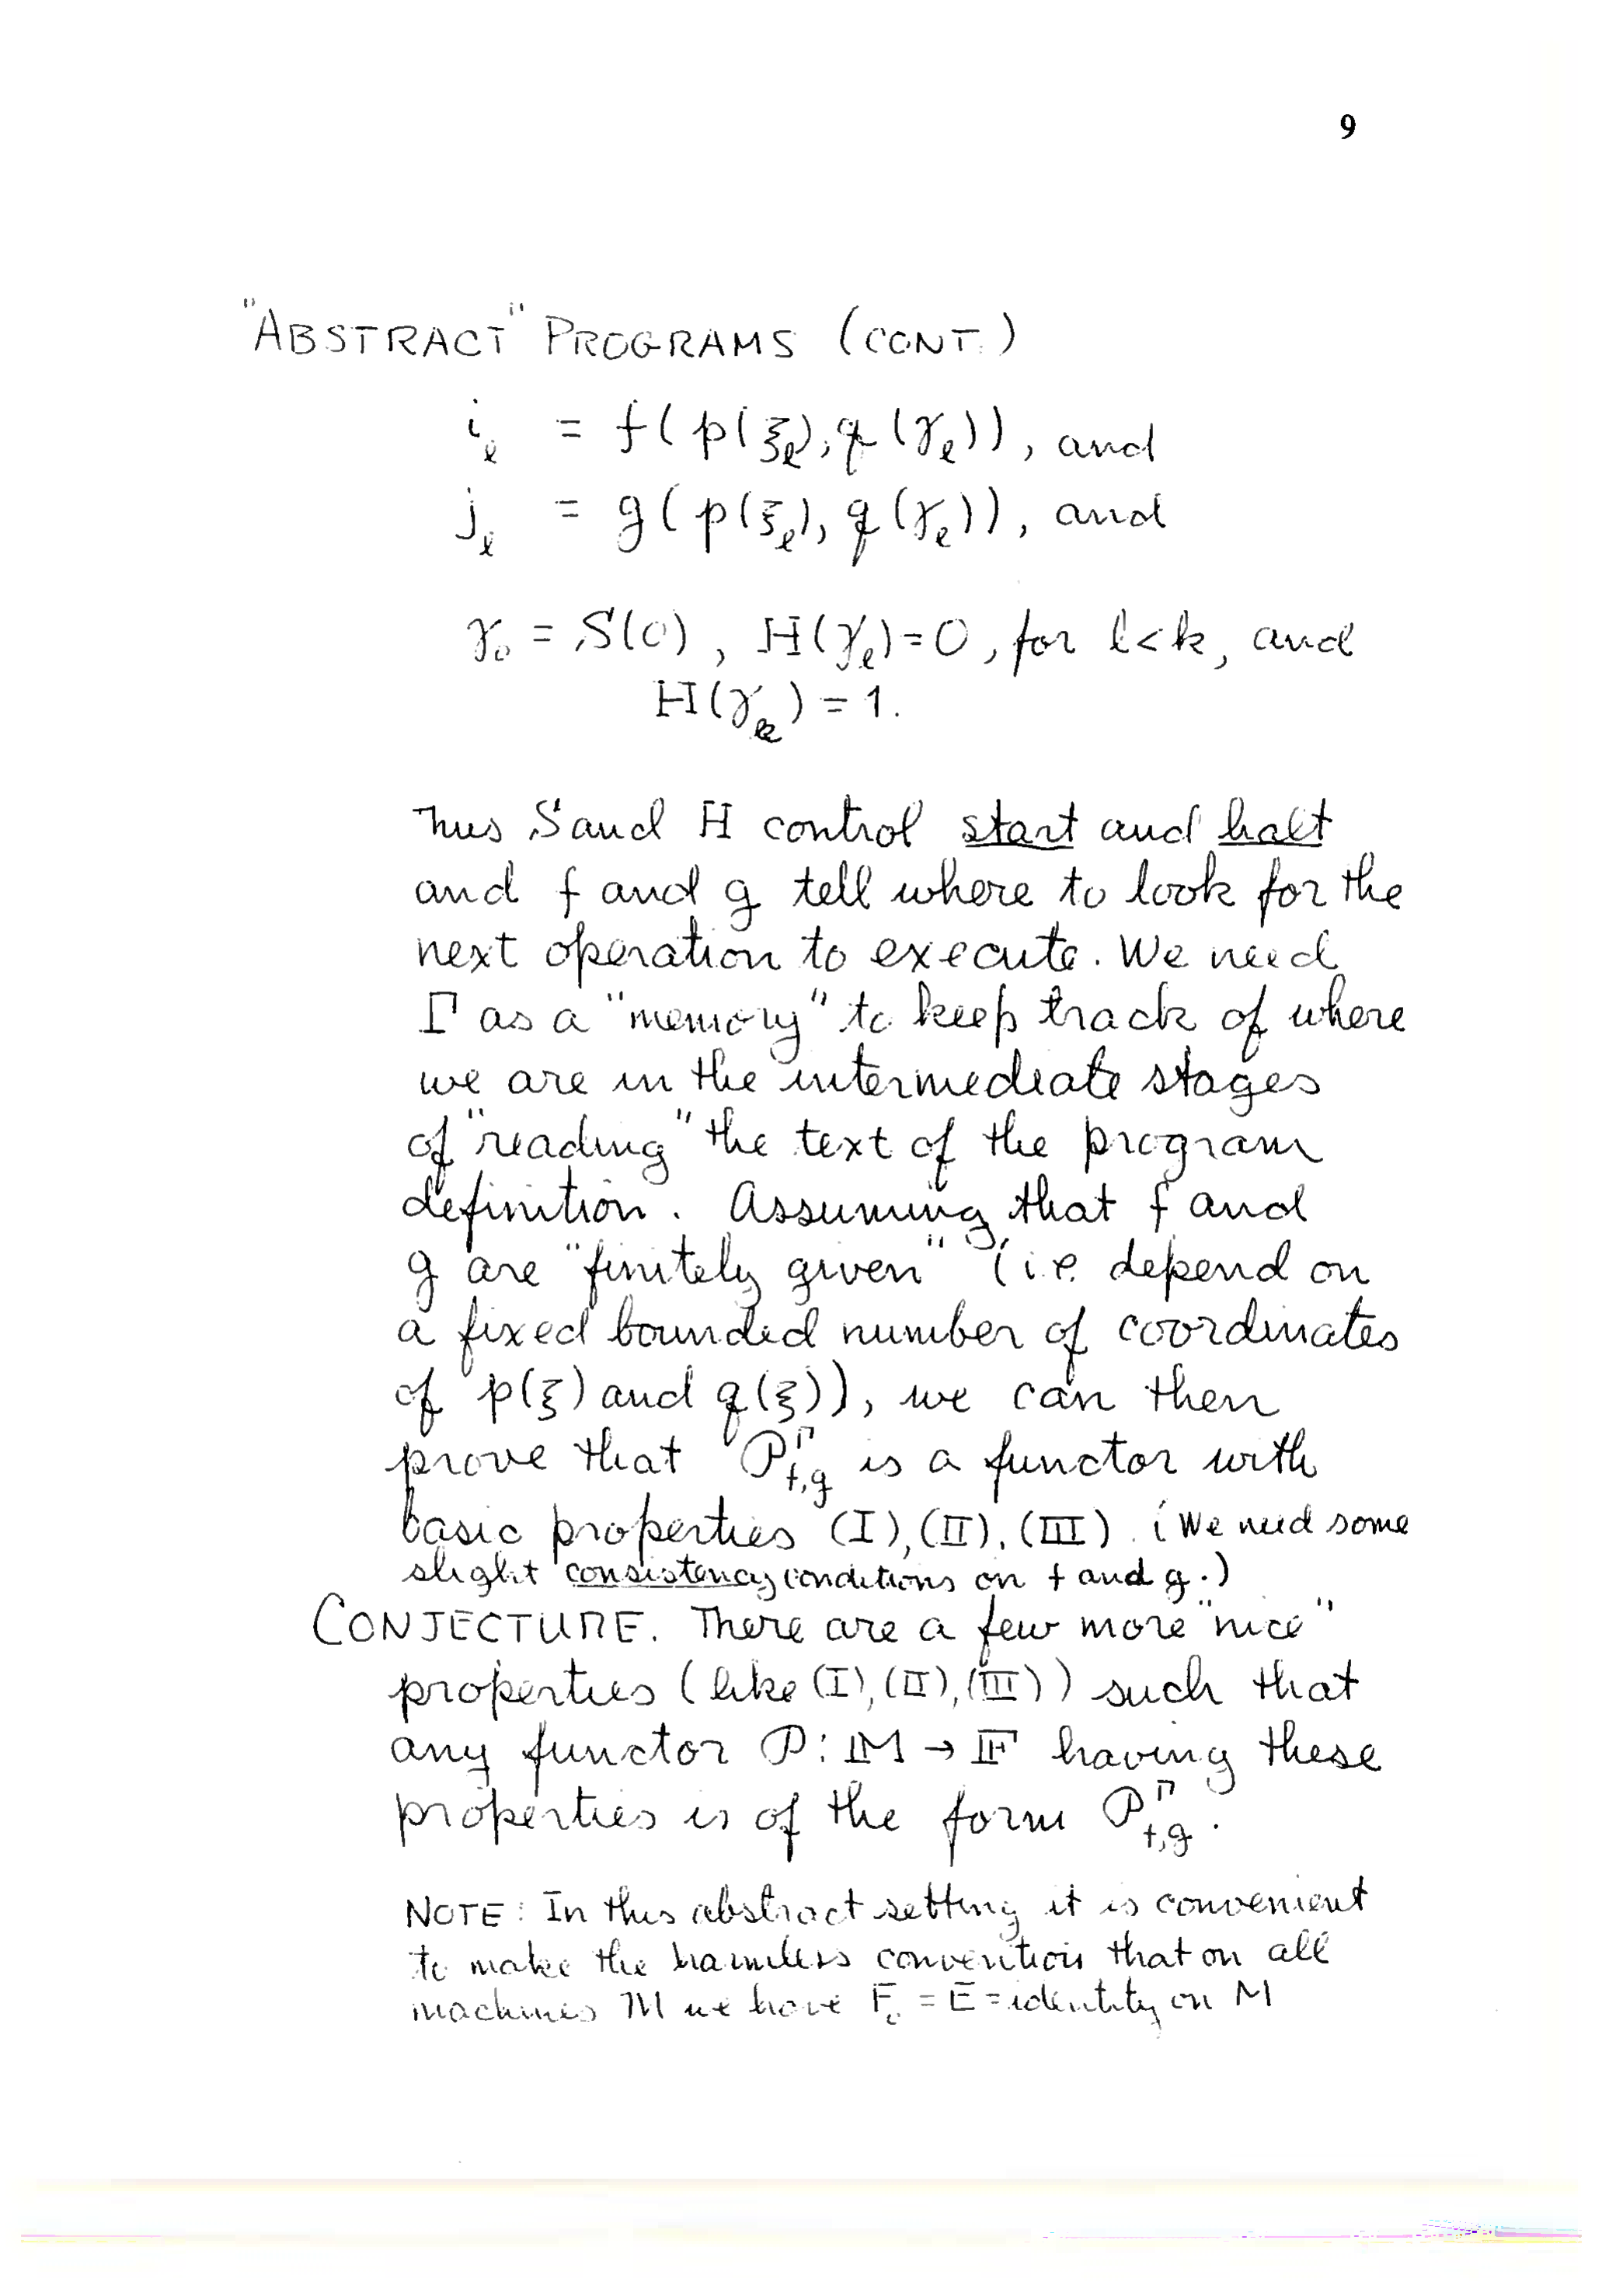 9
"ABSTRACT" PROGRAMS (CONT.)
i_ℓ = f(p(ξ_ℓ), q(γ_ℓ)), and
j_ℓ = g(p(ξ_ℓ), q(γ_ℓ)), and
γ_0 = S(0), H(γ_ℓ)=0, for ℓ<k, and
H(γ_k) = 1.
Thus S and H control start and halt
and f and g tell where to look for the
next operation to execute. We need
Γ as a "memory" to keep track of where
we are in the intermediate stages
of "reading" the text of the program
definition. Assuming that f and
g are "finitely given" (i.e. depend on
a fixed bounded number of coordinates
of p(ξ) and q(ξ)), we can then
prove that P^Γ_{f,g} is a functor with
basic properties (I), (II), (III). (We need some
slight consistency conditions on f and g.)
CONJECTURE. There are a few more "nice"
properties (like (I), (II), (III)) such that
any functor P: 𝕄 → 𝔽 having these
properties is of the form P^Γ_{f,g}.
NOTE: In this abstract setting it is convenient
to make the harmless convention that on all
machines M we have F_0 = E = identity on M